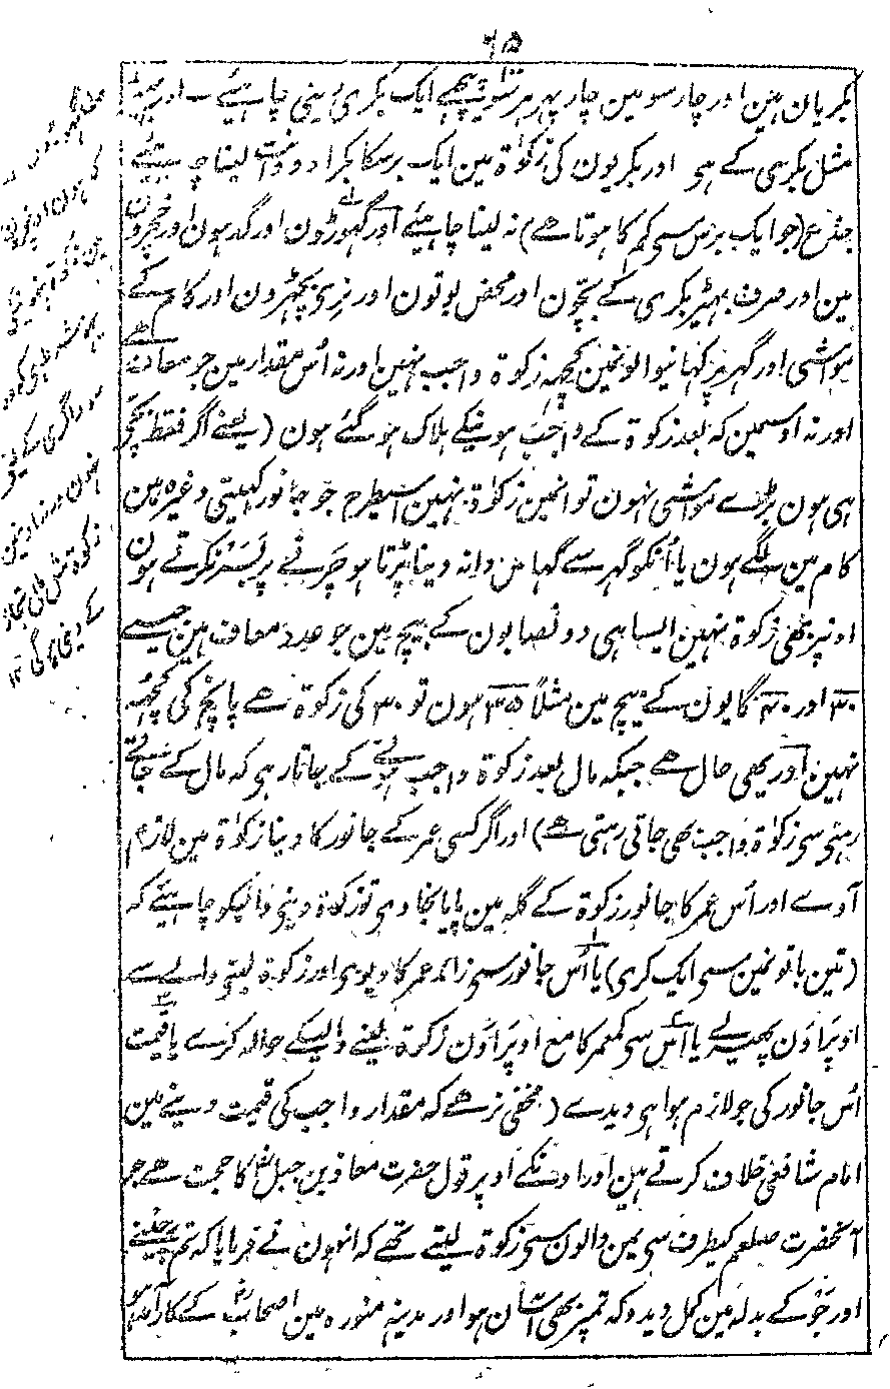 ۶۵
بکریان ہین اور چار سو مین چار پہر ہر سو پیچھے ایک بکری دینی چاہئیے ـ اور بھیڑ
مثل بکری کے ہو اور بکریون کی زکوٰۃ مین ایک برس کا بکرا دو دانت لینا چاہئیے
جذع (جو ایک برس سی کم کا ہوتا ہے) نہ لینا چاہئیے اور گھوڑون اور گدہون اور خچرون
مین اور صرف بہیڑ بکری کے بچون اور محض بوتون اور نری بچھڑون اور کام کے
مواشی اور گہر پر کہانیوالونمین کچھہ زکوۃ واجب نہین اور نہ اُس مقدار مین جو معاف ہے
اور نہ اوسمین کہ بعد زکوۃ کے واجب ہونیکے ہلاک ہو گئے ہون (یعنے اگر فقط بچے
ہی ہون بڑے مواشی نہون تو انمین زکوٰۃ نہین اسیطرح جو جانور کہیتی وغیرہ مین
کام مین لگے ہون یا اُنکو گہر سے گہاس دانہ دینا پڑتا ہو چرنے پر بسر نکرتے ہون
اونپر بھی زکوۃ نہین ایسا ہی دو نصابون کے بیچ مین جو عدد معاف ہین جیسے
۳۰ اور ۴۰ گایون کے بیچ مین مثلاً ۳۵ ہون تو ۳۰ کی زکوۃ ہے پانچ کی کچھہ
نہین اور یھی حال ہے جبکہ مال بعد زکوۃ واجب ہونے کے جاتا رہی کہ مال کے جاتے
رہنی سی زکوٰۃ واجب بھی جاتی رہتی ہے) اور اگر کسی عمر کے جانور کا دینا زکوٰۃ مین لازم
آوے اور اُس عمر کا جانور زکوۃ کے گلہ مین پایا نجاوی تو زکوۃ دینی والیکو چاہئیے کہ
(تین باتونمین سی ایک کری) یا اُس جانور سی زائد عمر کا دیوی اور زکوۃ لینی والے سے
اوپر اوَن پھیر لے یا اُس سی کمعمر کا مع اوپر اوَن زکوۃ لینے والیکے حوالہ کرے یا قیمت
اُس جانور کی جو لازم ہوا ہی دیدے (مخفی نرہے کہ مقدار واجب کی قیمت دینے مین
امام شافعی خلاف کرتے ہین اور اونکے اوپر قول حضرت معاذ بن جبل کا حجت ہے جو
آنحضرت صلعم کیطرف سی یمن والون سی زکوۃ لیتے تھے کہ انہون نے فرمایا کہ تم چنے
اور جَو کے بدلہ مین کمل دیدو کہ تمپر بھی آسان ہو اور مدینہ منورہ مین اصحاب کے کارآمد ہو